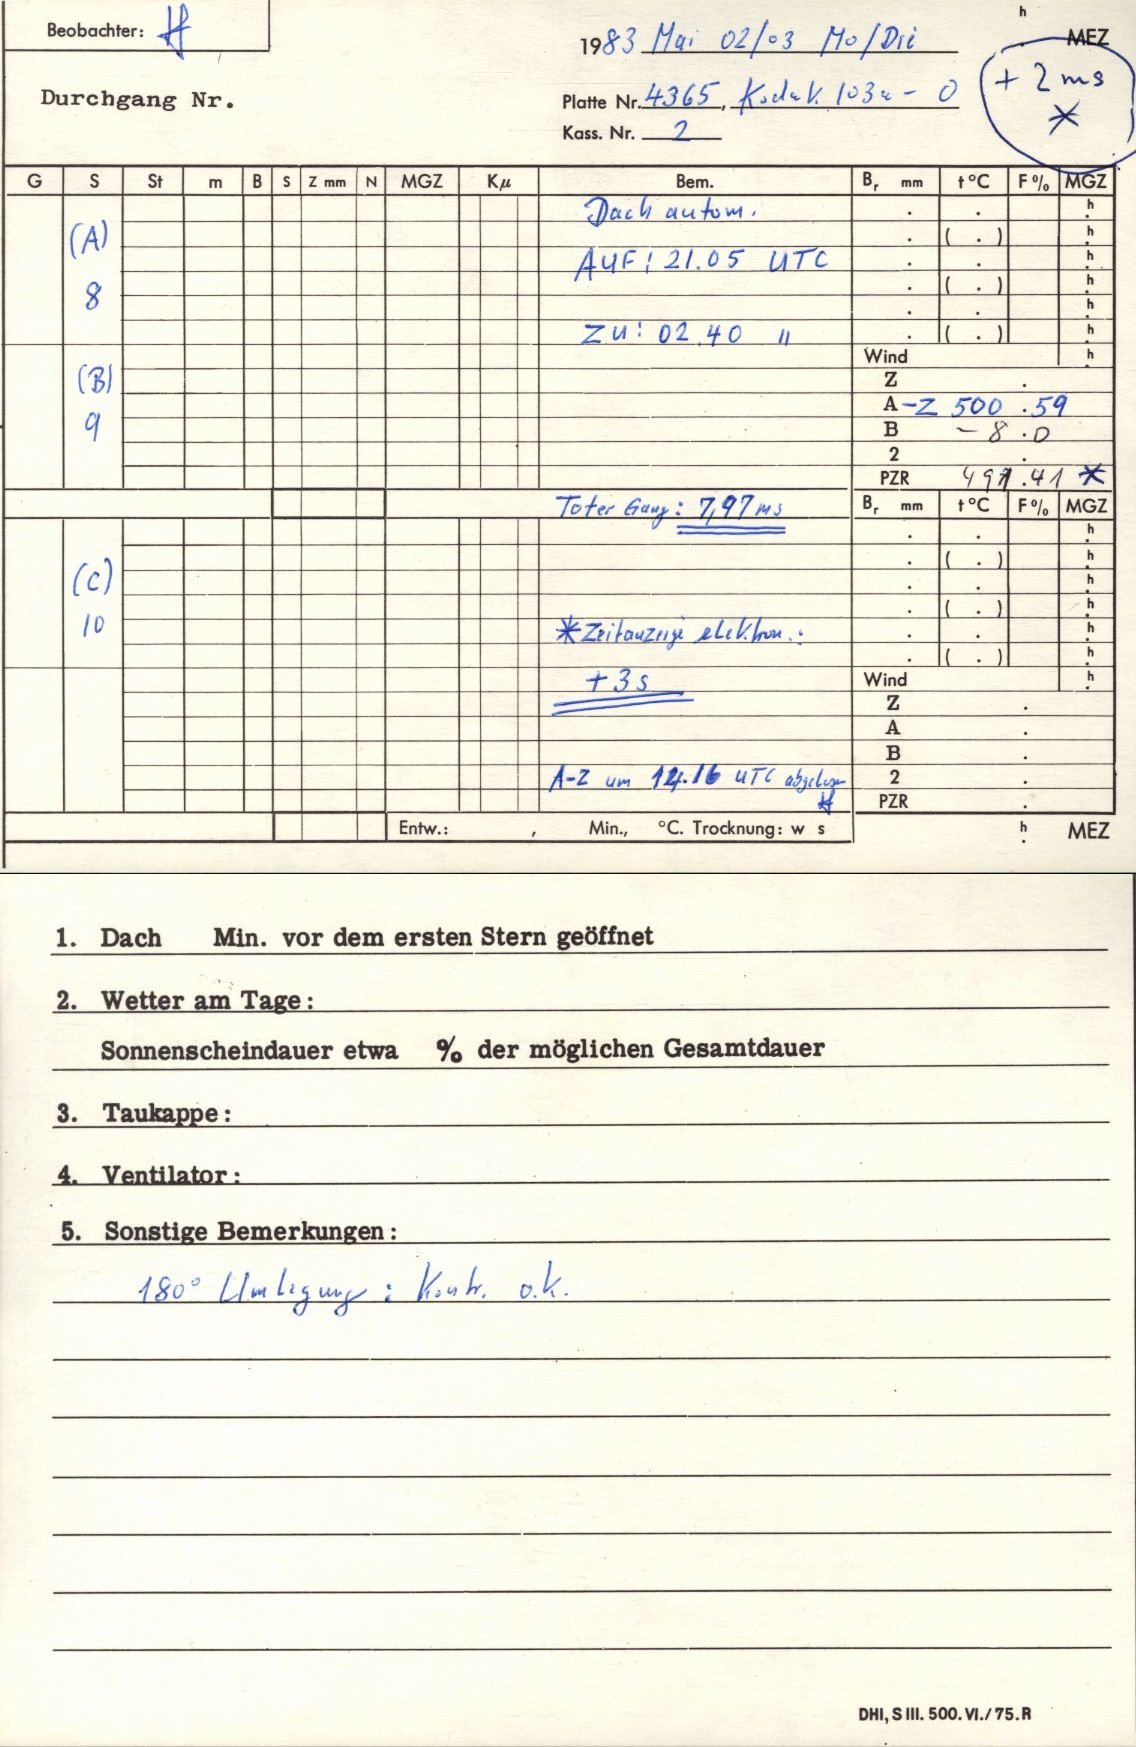 Beobachter: H
h
1983 Mai 02/03 Mo/Die
. MEZ
+ 2 ms
*
Durchgang Nr.
Platte Nr. 4365, Kodak 103a-O
Kass. Nr. 2
G S St m B S Z mm N MGZ Kμ Bem. Br mm t°C F% MGZ
Dach autom. . . h
(A) . ( . ) h
AUF: 21.05 UTC . . h
8 . ( . ) h
. . h
ZU: 02.40 " . ( . ) h
Wind h
(B) Z .
A -Z 500 .59
9 B -8.0
2 .
PZR 491.41 *
Toter Gang: 7,97 ms Br mm t°C F% MGZ
. . h
. ( . ) h
(C) . . h
. ( . ) h
10 * Zeitanzeige elektron.: . . h
. ( . ) h
+3s Wind h
Z .
A .
B .
A-Z um 14.16 UTC abgelesen 2 .
H PZR .
Entw.: , Min., °C. Trocknung: w s h . MEZ
1. Dach Min. vor dem ersten Stern geöffnet
2. Wetter am Tage:
Sonnenscheindauer etwa % der möglichen Gesamtdauer
3. Taukappe:
4. Ventilator:
5. Sonstige Bemerkungen:
180° Umlegung: Kontr. o.k.
DHI, S III. 500. VI./75. R